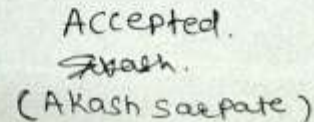 Accepted.
Akash.
(Akash Sarpate)